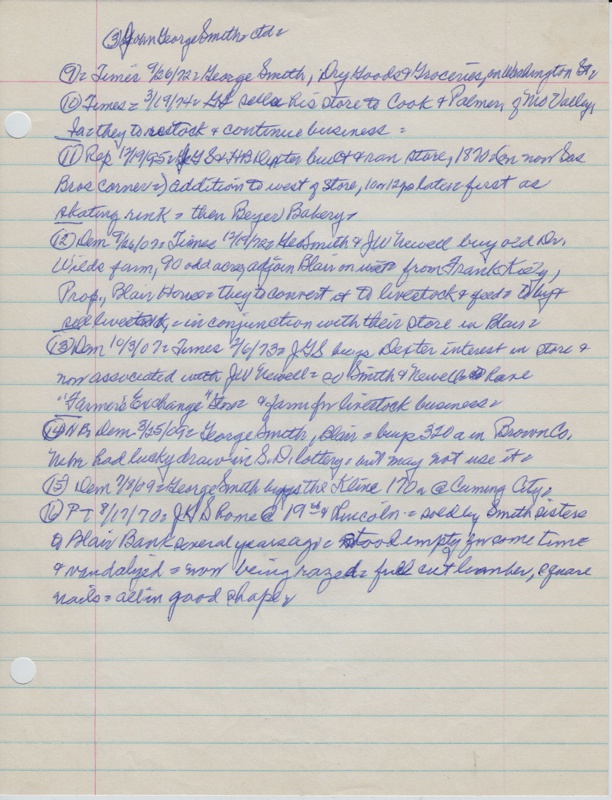 ③ John George Smith = ctd =
⑨ = Times 9/26/72 = George Smith, Dry Goods & Groceries, on Washington St =
⑩ Times = 3/19/74 = GS sells his store to Cook & Palmer, of Mo Valley,
Ia = they to restock & continue business =
⑪ Rep 12/9/25 = JGS & HB Dexter built & ran store, 1870 (on now Sas
Bros corner =) addition to west of store, 10 or 12 yo later = first as
skating rink = then Beyer Bakery =
⑫ Dem 9/26/07 = Times 12/19/72 = Geo Smith & JW Newell buy old Dr.
Wilds farm, 90 odd acres, adjoin Blair on west = from Frank
Prop., Blair House = they to convert it to livestock & feed = to buy &
sell livestock, = in conjunction with their store in Blair =
⑬ Dem 10/3/07 = Times 2/6/73 = JGS buys Dexter interest in store &
now associated with JW Newell = so Smith & Newell = have
"Farmer's Exchange" Store & farm for livestock business =
⑭ NB, Dem 3/25/09 = George Smith, Blair = buys 320 a in Brown Co.
Nebr had lucky draw in S.D. lottery = but may not use it =
⑮ Dem 7/8/09 = George Smith buys the Kline 170 a @ Cuming City =
⑯ PT 8/17/70 = JGS home @ 19th & Lincoln = sold by Smith sisters
to Blair Bank several years ago = stood empty for some time
& vandalized = now being razed = full cut lumber, square
nails = all in good shape =